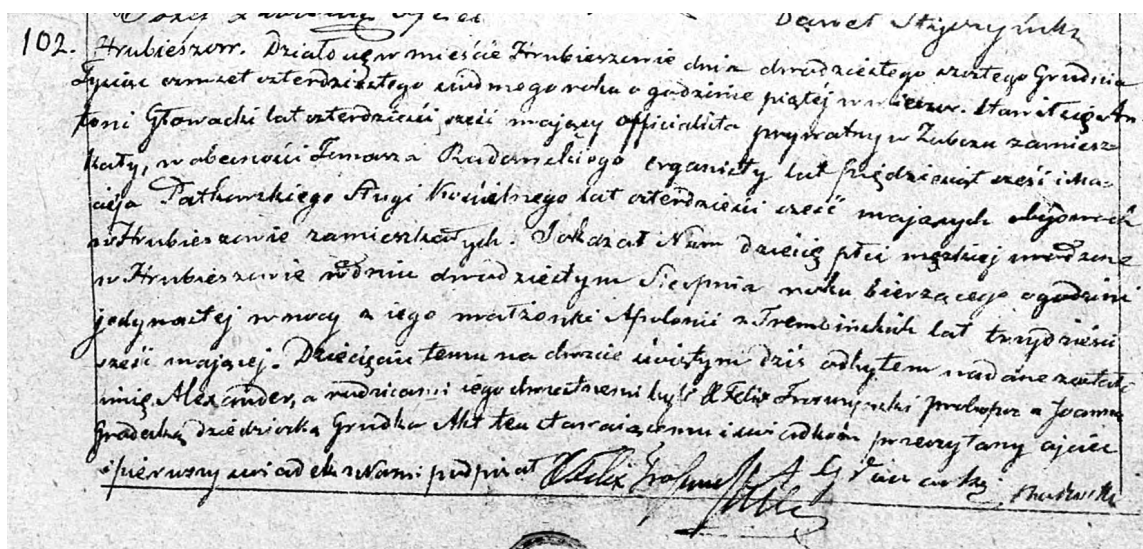 Paweł
102. Hrubieszow. Działo się w mieście Hrubieszowie dnia dwudziestego szostego Grudnia
Tysiąc osmset czterdziestego siodmego roku o godzinie piątej w wieczor. Stawił się An
toni Głowacki lat czterdzieści sześć mający officialista prywatny w Zubczu zamiesz-
kały, w obecności Tomasza Radomskiego organisty lat piędziesiąt sześć i Ma-
cieja Patkowskiego Sługi Kościelnego lat czterdzieści sześć mających obydwoch
w Hrubieszowie zamieszkałych. Pokazał Nam dziecię płci męzkiej urodzone
w Hrubieszowie w dniu dwudziestym Sierpnia roku bierzącego o godzini
jedynastej w nocy z iego małżonki Apolonii z Trembińskich lat trzydzieści
sześć mającej. Dziecięciu temu na chrzcie świętym dziś odbytem nadane zostało
imię Alexander, a rodzicami iego chrzestnemi byli X Felix proboszcz a Joanna
Gradecka dziedziczka Grudka Akt ten stawaiącemu i świadkom przeczytany ojciec
i pierwszy świadek z Nami podpisał X Felix A Głowacki